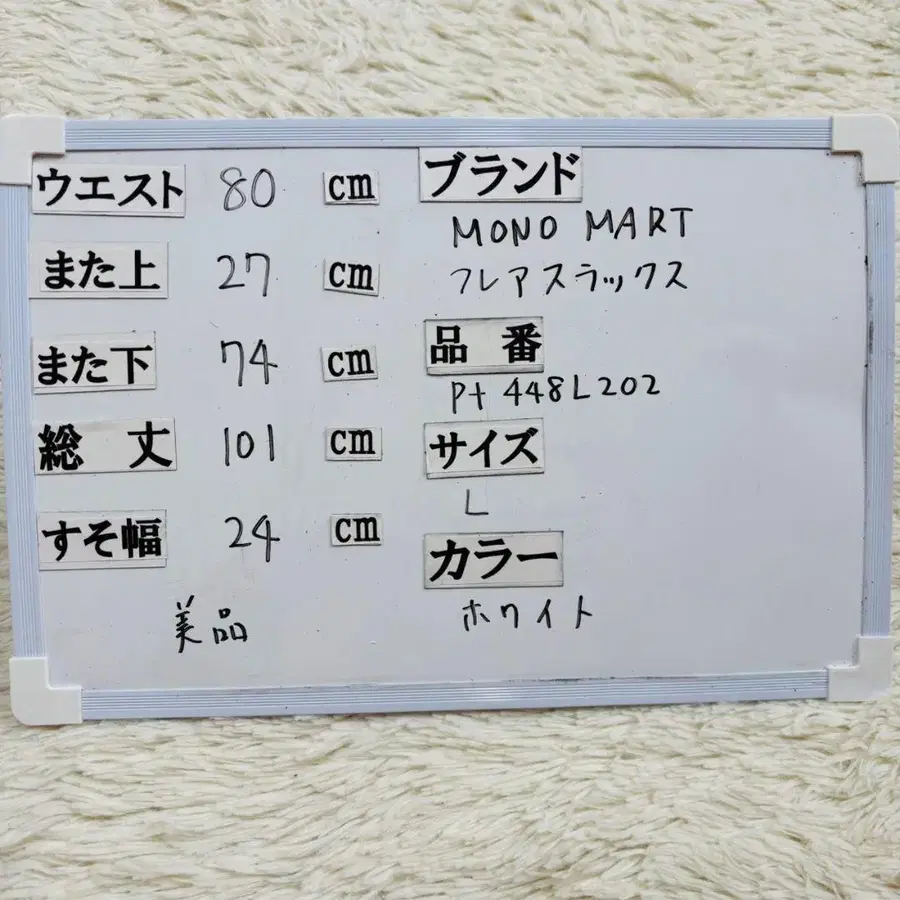 ウエスト 80 cm
また上 27 cm
また下 74 cm
総丈 101 cm
すそ幅 24 cm
美品
ブランド
MONO MART
フレアスラックス
品番
Pt 448L202
サイズ
L
カラー
ホワイト